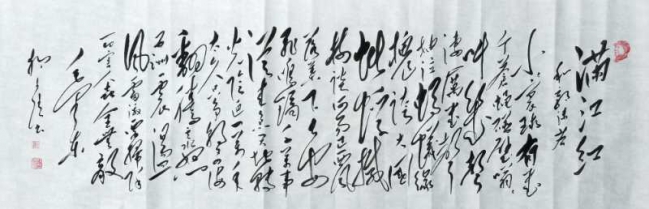 满江红
和郭沫若
小小寰球有几
个苍蝇碰壁嗡嗡
叫几声
凄厉几声
抽泣蚂蚁缘
槐夸大国
蚍蜉撼
树谈何易正西风
落叶下长安
飞鸣镝多少事
从来急天地转
光阴迫一万年
太久只争朝夕四海
翻腾云水怒
五洲震荡
风雷激要扫除
全无敌
毛泽东